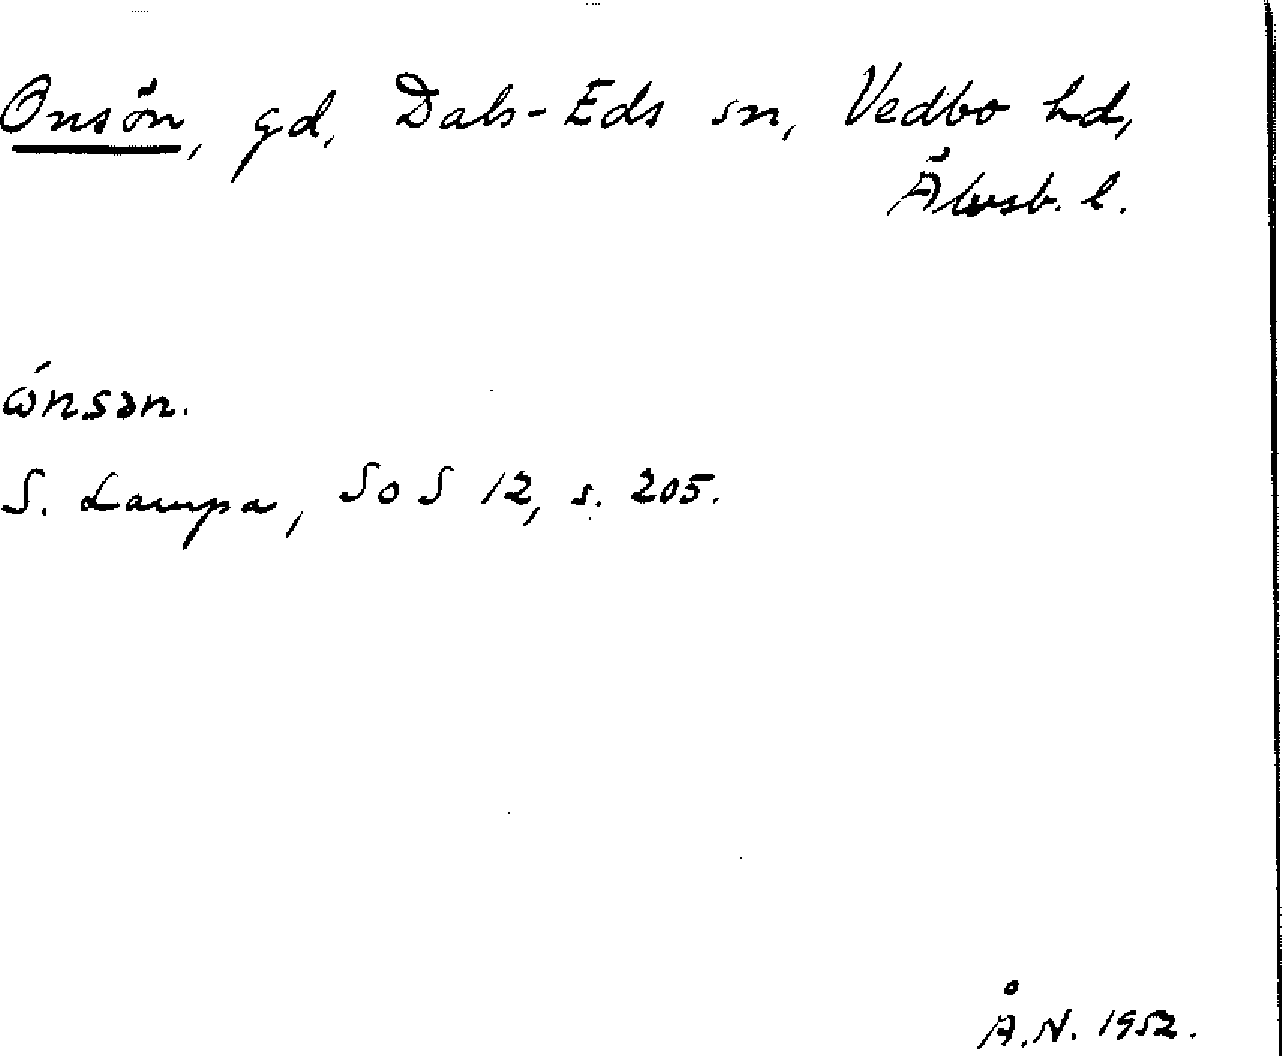 Onsön, gd, Dals-Eds sn, Vedbo hd,
Älvsb. l.
ώnsən.
S. Lampa, SoS 12, s. 205.
Å.N. 1952.